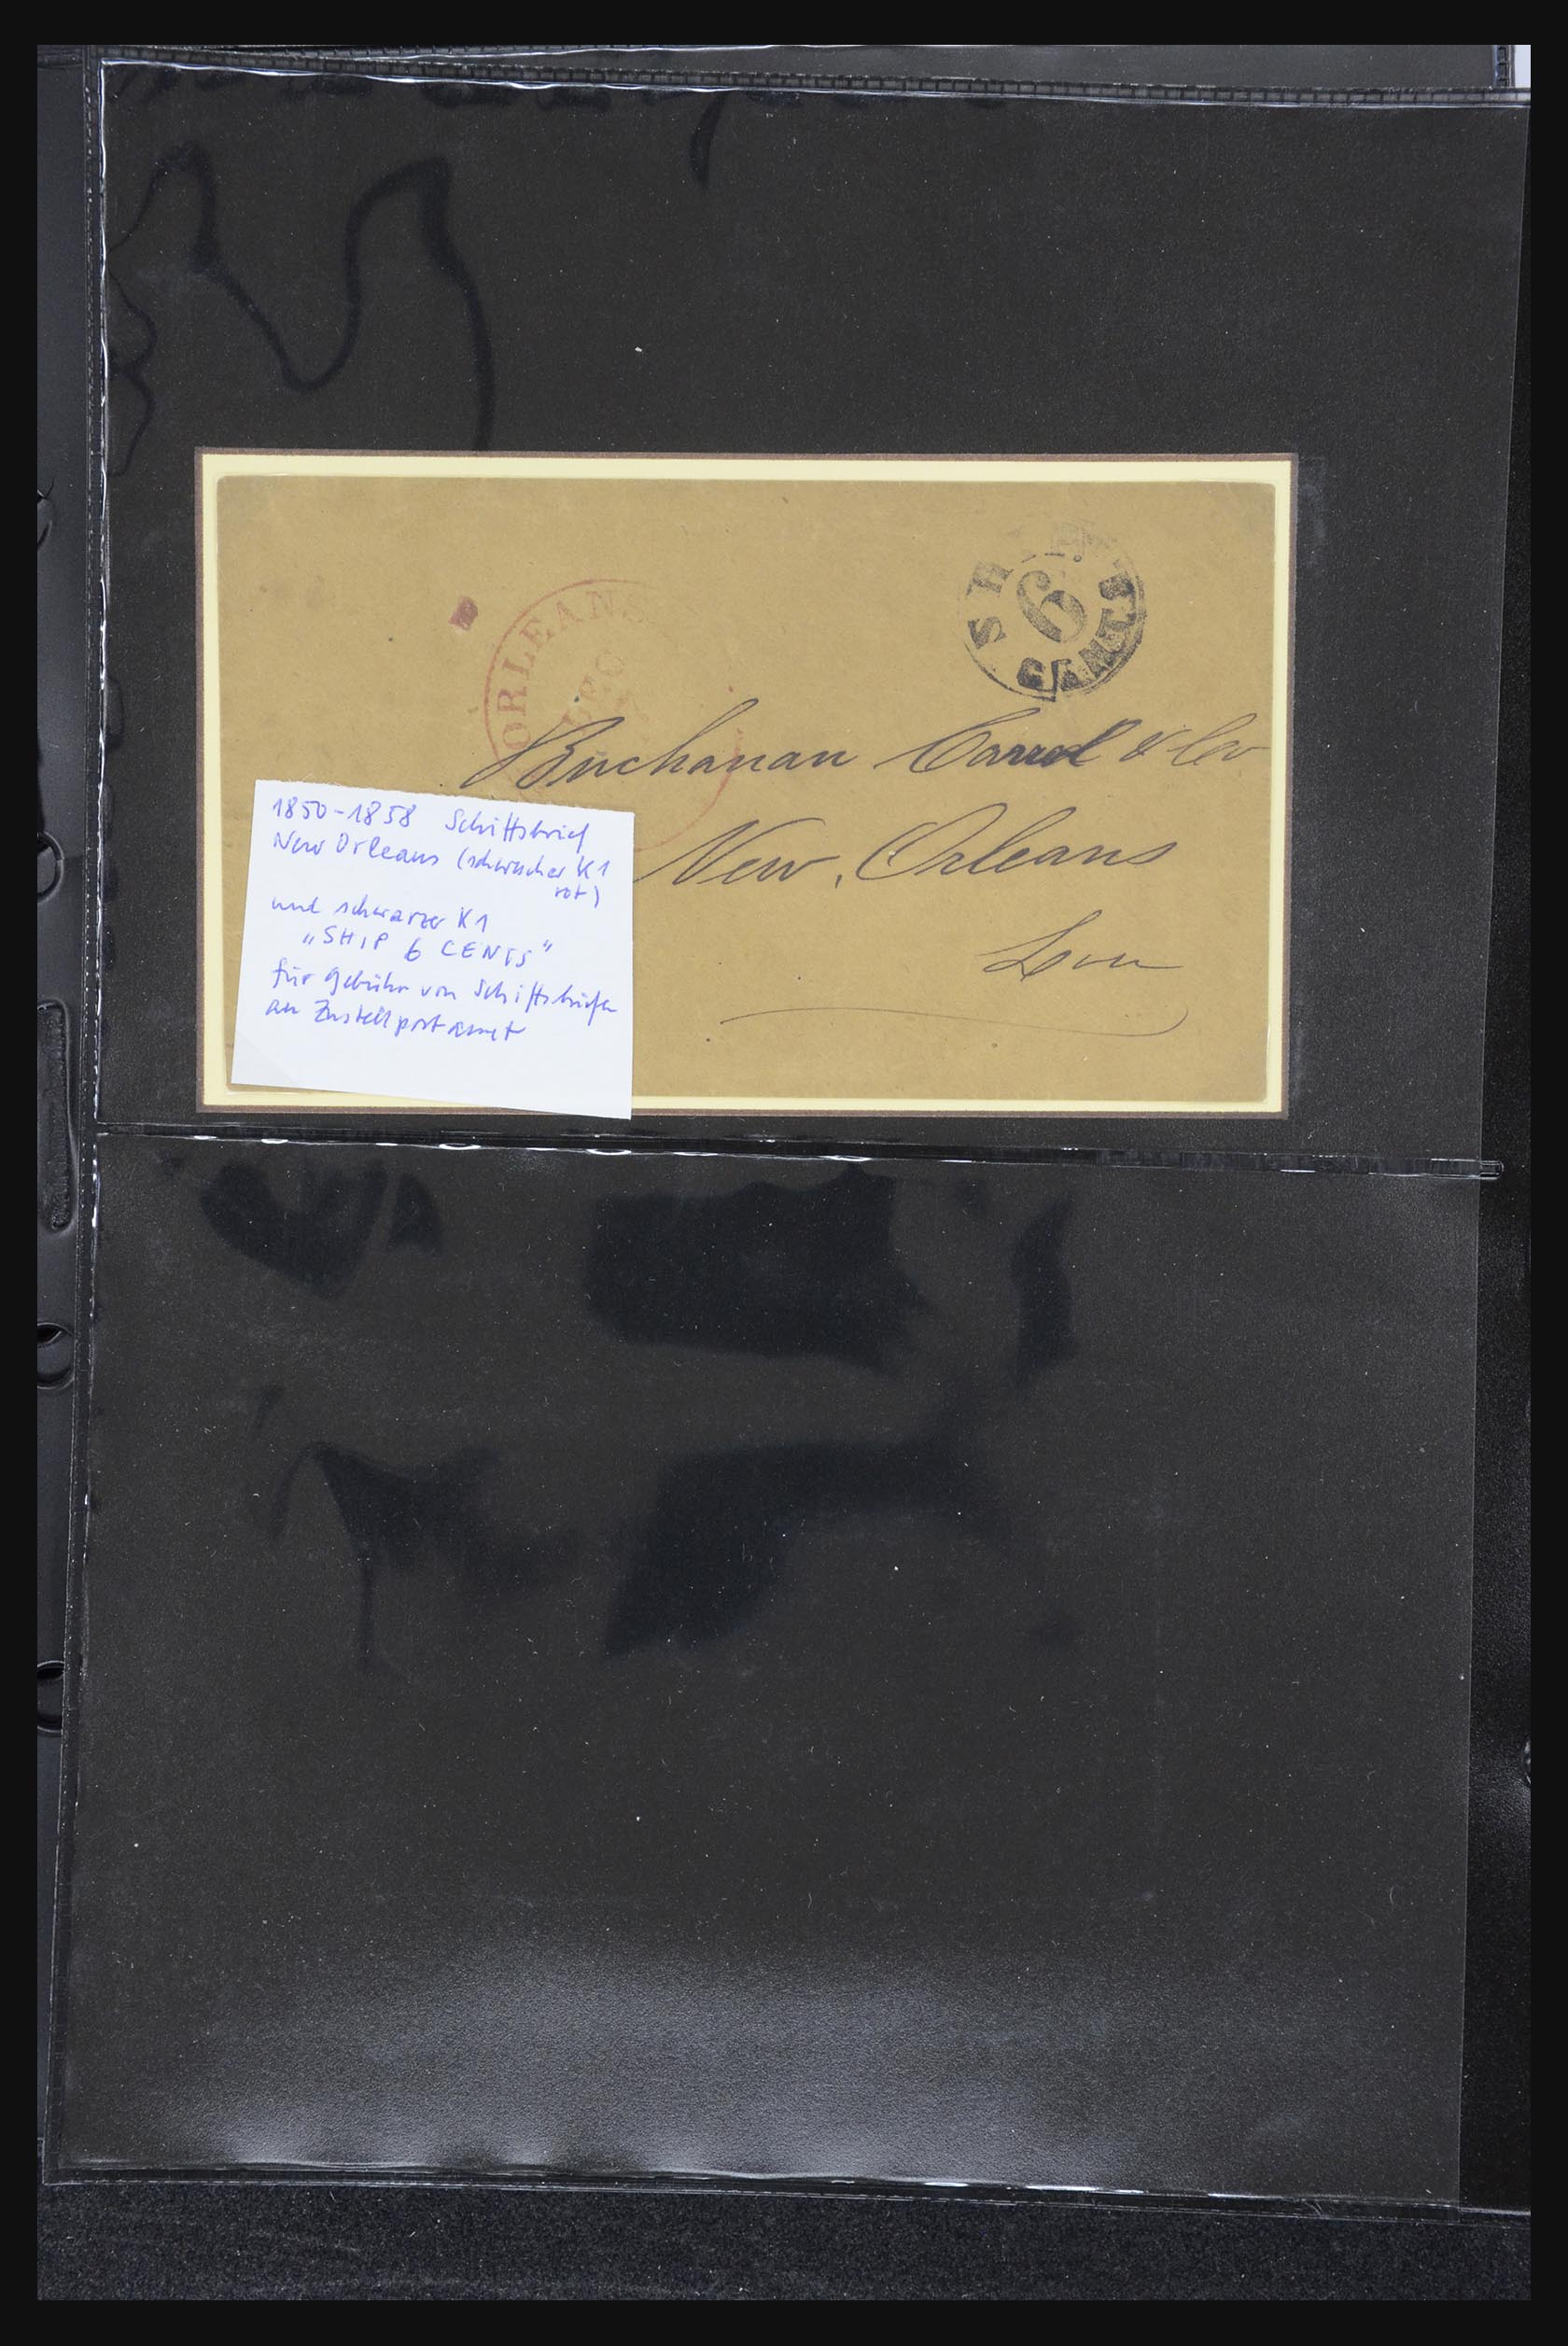 SHIP
6
CENTS
ORLEANS
Buchanan Carrol & Co
New Orleans
Lou
1850-1858 Schiffsbrief
New Orleans (schwacher K1
rot)
und schwarzer K1
"SHIP 6 CENTS"
für Gebühr von Schiffsbriefen
an Zustellpostamt